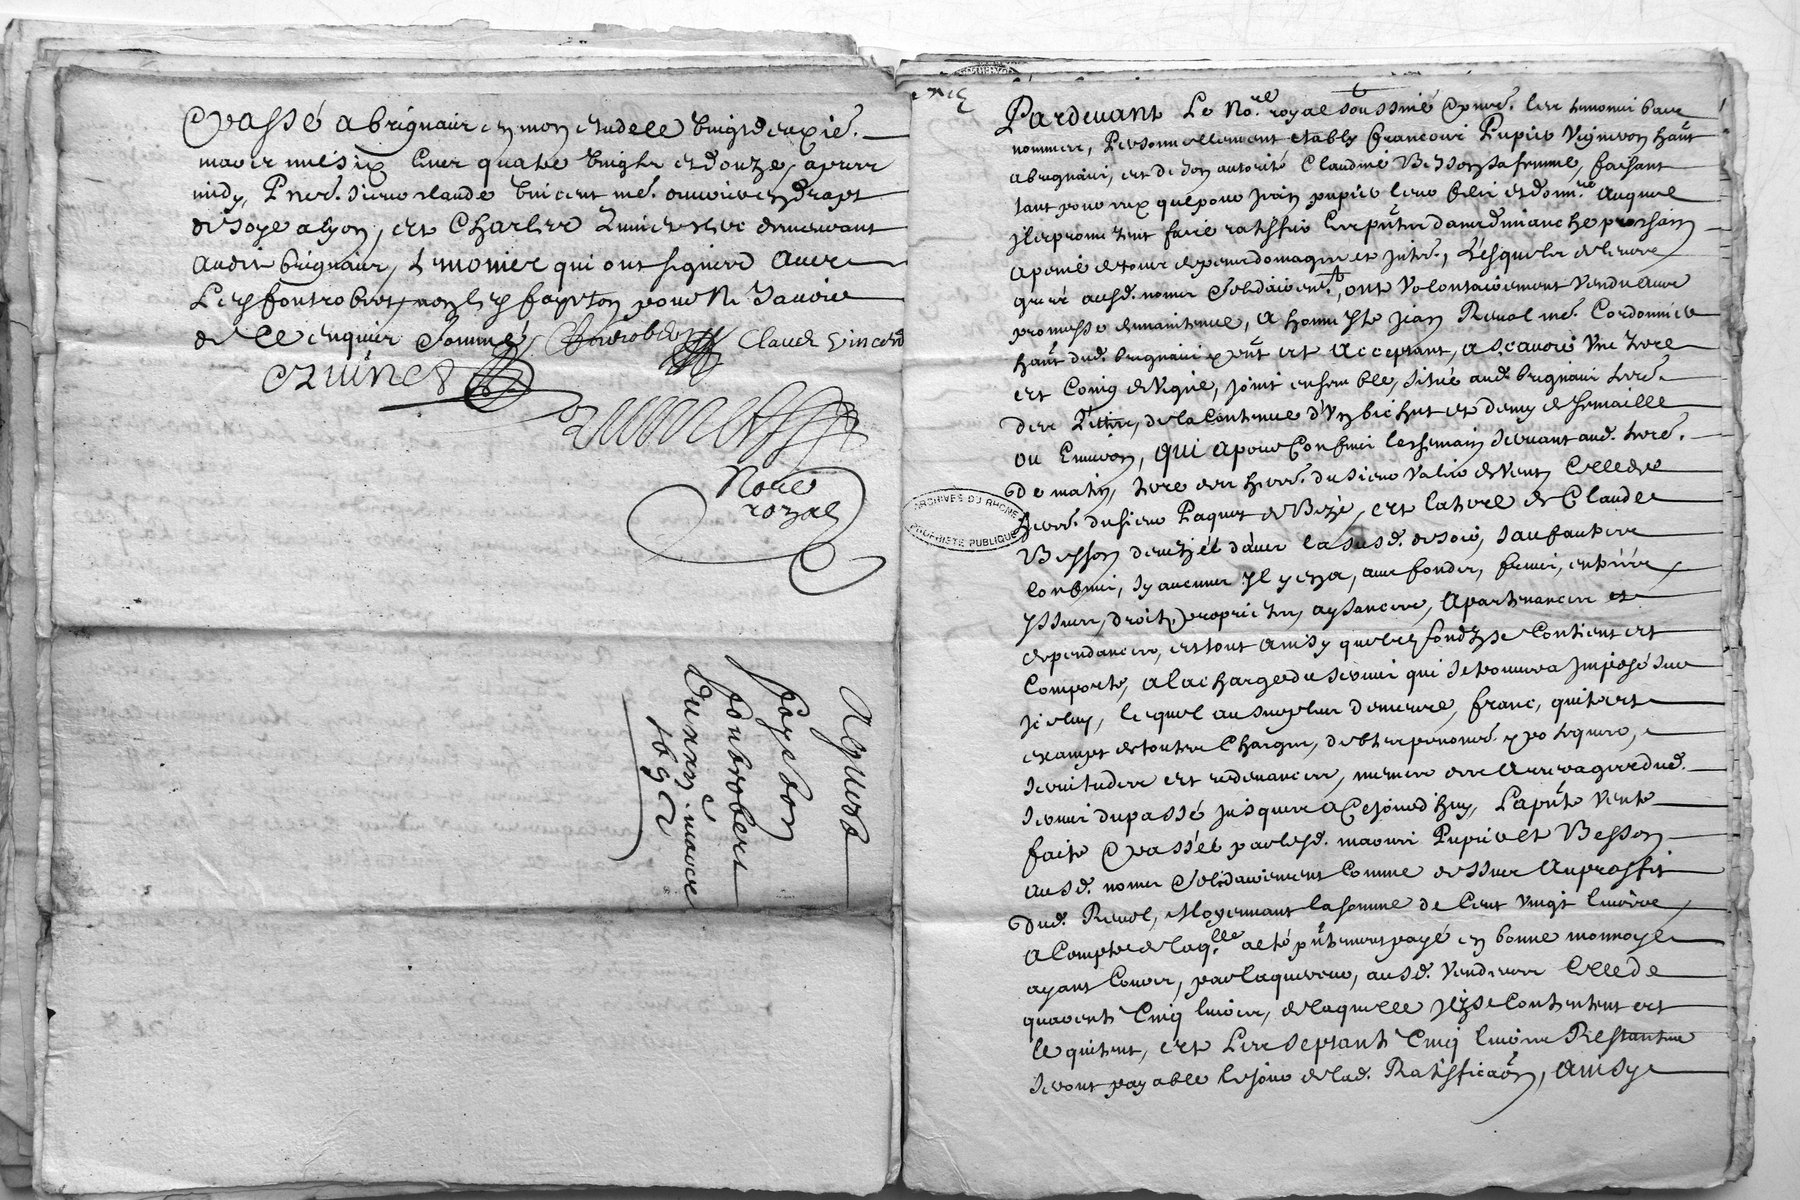 & passé a brignair en mon etude le vingt deuxie.
mars mil six cent quatre vingts et douze, apres
midy, Pnts. Sieur Claude Vincent me. ouvrier en draps
de Soye a lyon, et Charles demeurant
audit brignair, qui ont signé avec
led. fontrobert, non led. fayeton pour ne scavoir
de ce enquier & sommé, fontrobert Claude Vincent
Nore
royal
Aquest
fayeton
fontrobert
Du xxii mars
1692
Pardevant Le No.re royal soussigné & pnts. les temoins bas
nommes, Personnellement etablis francois Pupier Vigneron habt.
a brignair, et de son autorité Claudine Besson sa femme, faisant
tant pour eux que pour Jean pupier leur fils et donn.re auquel
Ils promettent faire ratiffier les pntes dans dimanche prochain
a peine de tous depens domages et inter., Lesquels de leur
gré ausd. noms & solidairem.t, ont volontairement vendu avec
promesse de maintenir, a honneste Jean Revol me. Cordonnier
habt. dud. brignair pnt et acceptant, a scavoir une terre
et Coing de vigne, joint ensemble, situé aud. brignair terre.
des de la contenue d'un bichet et demy de semaille
ou environ, qui a pour confins le chemin servant aud. terre.
de matin, terre des hers. du sieur Valier de vent, Celle des
hers. du sieur Paquet de Bize, et la terre de Claude
Besson de la susd. de soir, sauf autres
confins, sy aucuns Il y en a, avec fonds, fruits, entrées,
yssues, droits, proprietés, aysances, apartenances et
dependances, et tout ainsy que led. fonds se Contient et
Comporte, a la charge du servis qui se trouvera imposé sur
icelluy, lequel au surplus demeure, franc, quitte et
exampt de toutes charges, debtes
servitudes et redevances, mesme des arrerages dud.
servis du passé jusques a Cejourdhuy, La pnte vente
faite & passée par lesd. mariés Pupier et Besson
ausd. noms & solidairement Comme dessus au proffit
dud. Revol, Moyennant la somme de Cent vingt livres,
a Compte de laq.lle a eté pntement payé en bonne monnoye
ayant cours, par l'aquereur, ausd. vendeurs Celle de
quarente Cinq livres, de laquelle Ils se Contentent et
le quittent, et Les septante Cinq livres Restantes
seront payable le jour de lad. Ratifficaon, ainsy
ARCHIVES DU RHONE
PROPRIETE PUBLIQUE